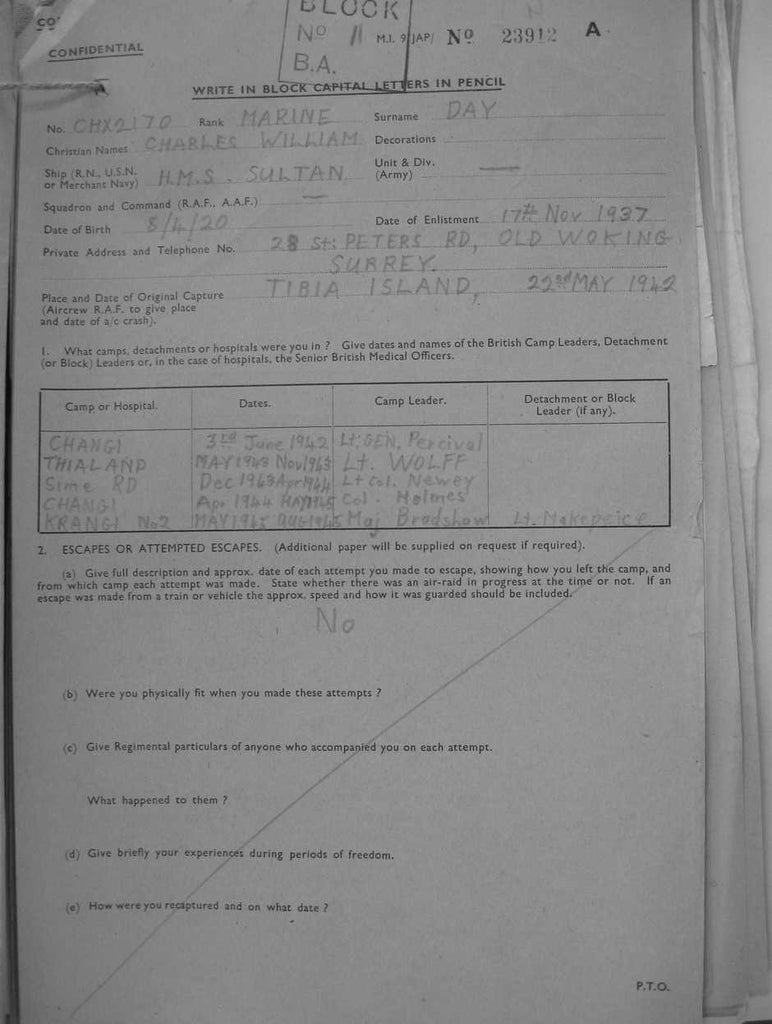 CO
BLOCK
CONFIDENTIAL
No 11 M.I. 9/JAP/ No 23912 A
B.A.
WRITE IN BLOCK CAPITAL LETTERS IN PENCIL
No. CHX2170 Rank MARINE Surname DAY
Christian Names CHARLES WILLIAM Decorations
Ship (R.N., U.S.N. or Merchant Navy) H.M.S. SULTAN Unit & Div. (Army) —
Squadron and Command (R.A.F., A.A.F.) —
Date of Birth 8/4/20 Date of Enlistment 17th Nov 1937
Private Address and Telephone No. 28 St: PETERS RD, OLD WOKING
SURREY.
Place and Date of Original Capture TIBIA ISLAND, 22nd MAY 1942
(Aircrew R.A.F. to give place
and date of a/c crash).
1. What camps, detachments or hospitals were you in ? Give dates and names of the British Camp Leaders, Detachment
(or Block) Leaders or, in the case of hospitals, the Senior British Medical Officers.
Camp or Hospital. Dates. Camp Leader. Detachment or Block Leader (if any).
CHANGI 3rd June 1942 Lt: GEN. Percival
THIALAND MAY 1943 Nov 1943 Lt. WOLFF
Sime RD Dec 1943 Apr 1944 Lt Col. Newey
CHANGI Apr 1944 MAY 1945 Col. Holmes
KRANGI No2 MAY 1945 AUG 1945 Maj Bradshaw Lt. Makepeice
2. ESCAPES OR ATTEMPTED ESCAPES. (Additional paper will be supplied on request if required).
(a) Give full description and approx. date of each attempt you made to escape, showing how you left the camp, and
from which camp each attempt was made. State whether there was an air-raid in progress at the time or not. If an
escape was made from a train or vehicle the approx. speed and how it was guarded should be included.
No
(b) Were you physically fit when you made these attempts ?
(c) Give Regimental particulars of anyone who accompanied you on each attempt.
What happened to them ?
(d) Give briefly your experiences during periods of freedom.
(e) How were you recaptured and on what date ?
P.T.O.